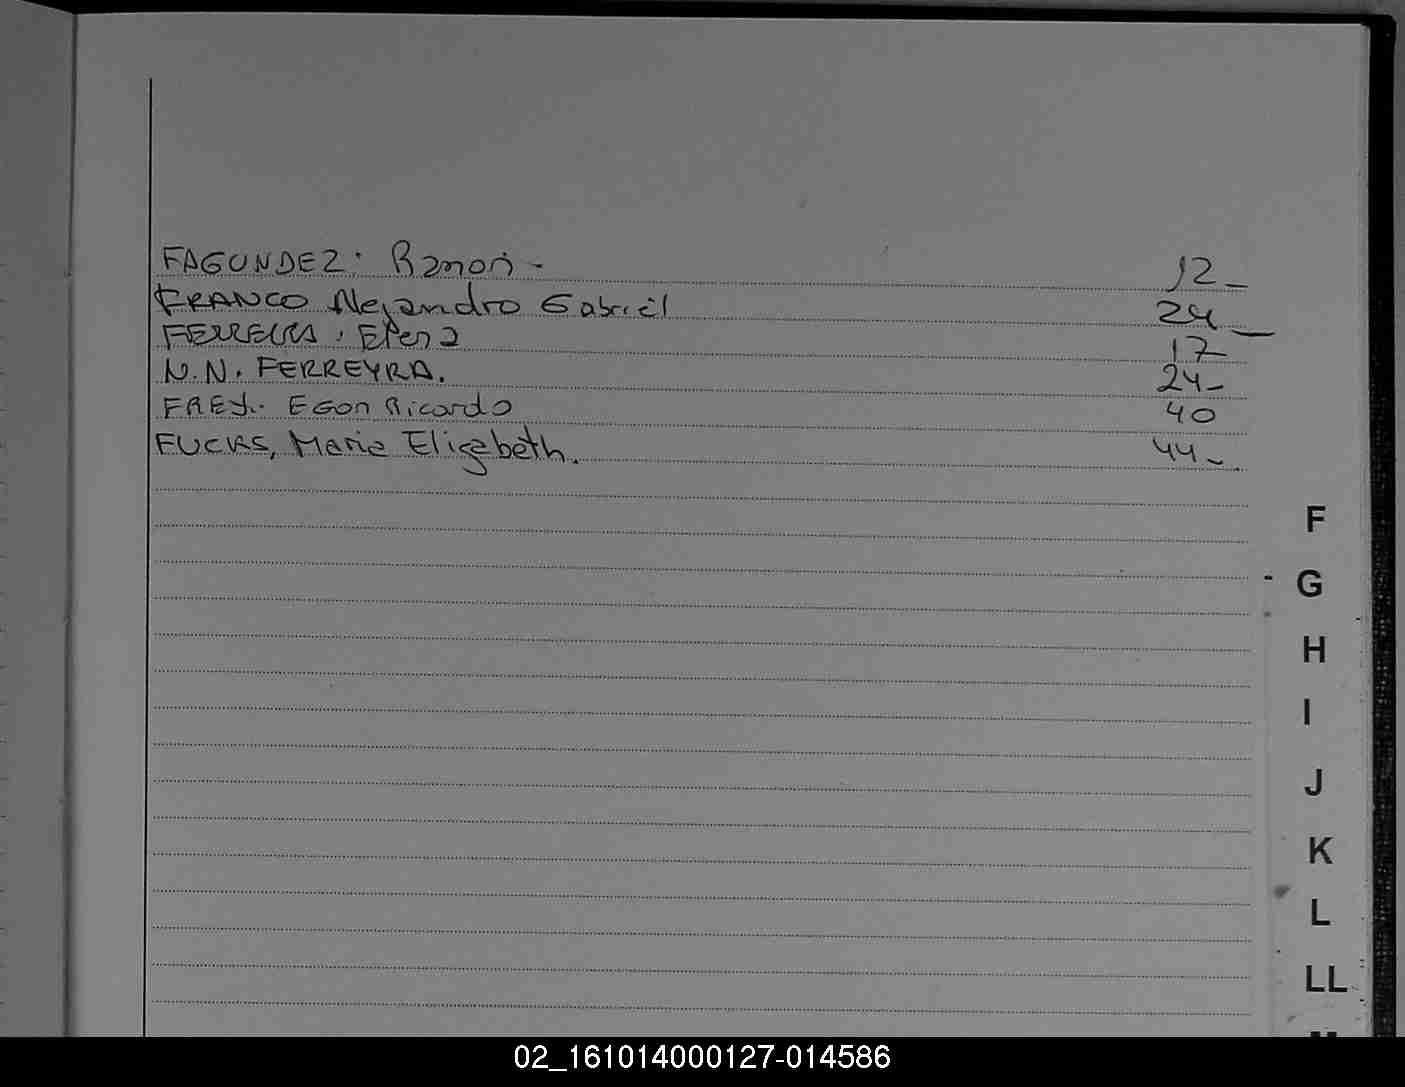 FAGUNDEZ. Ramon - 12 -
FRANCO Alejandro Gabriel 24 -
FERREIRA. Elena 17
N.N. FERREYRA. 24 -
FREY. Egon Ricardo 40
FUCKS, Maria Elizabeth. 44 -
F
G
H
I
J
K
L
LL
02_161014000127-014586